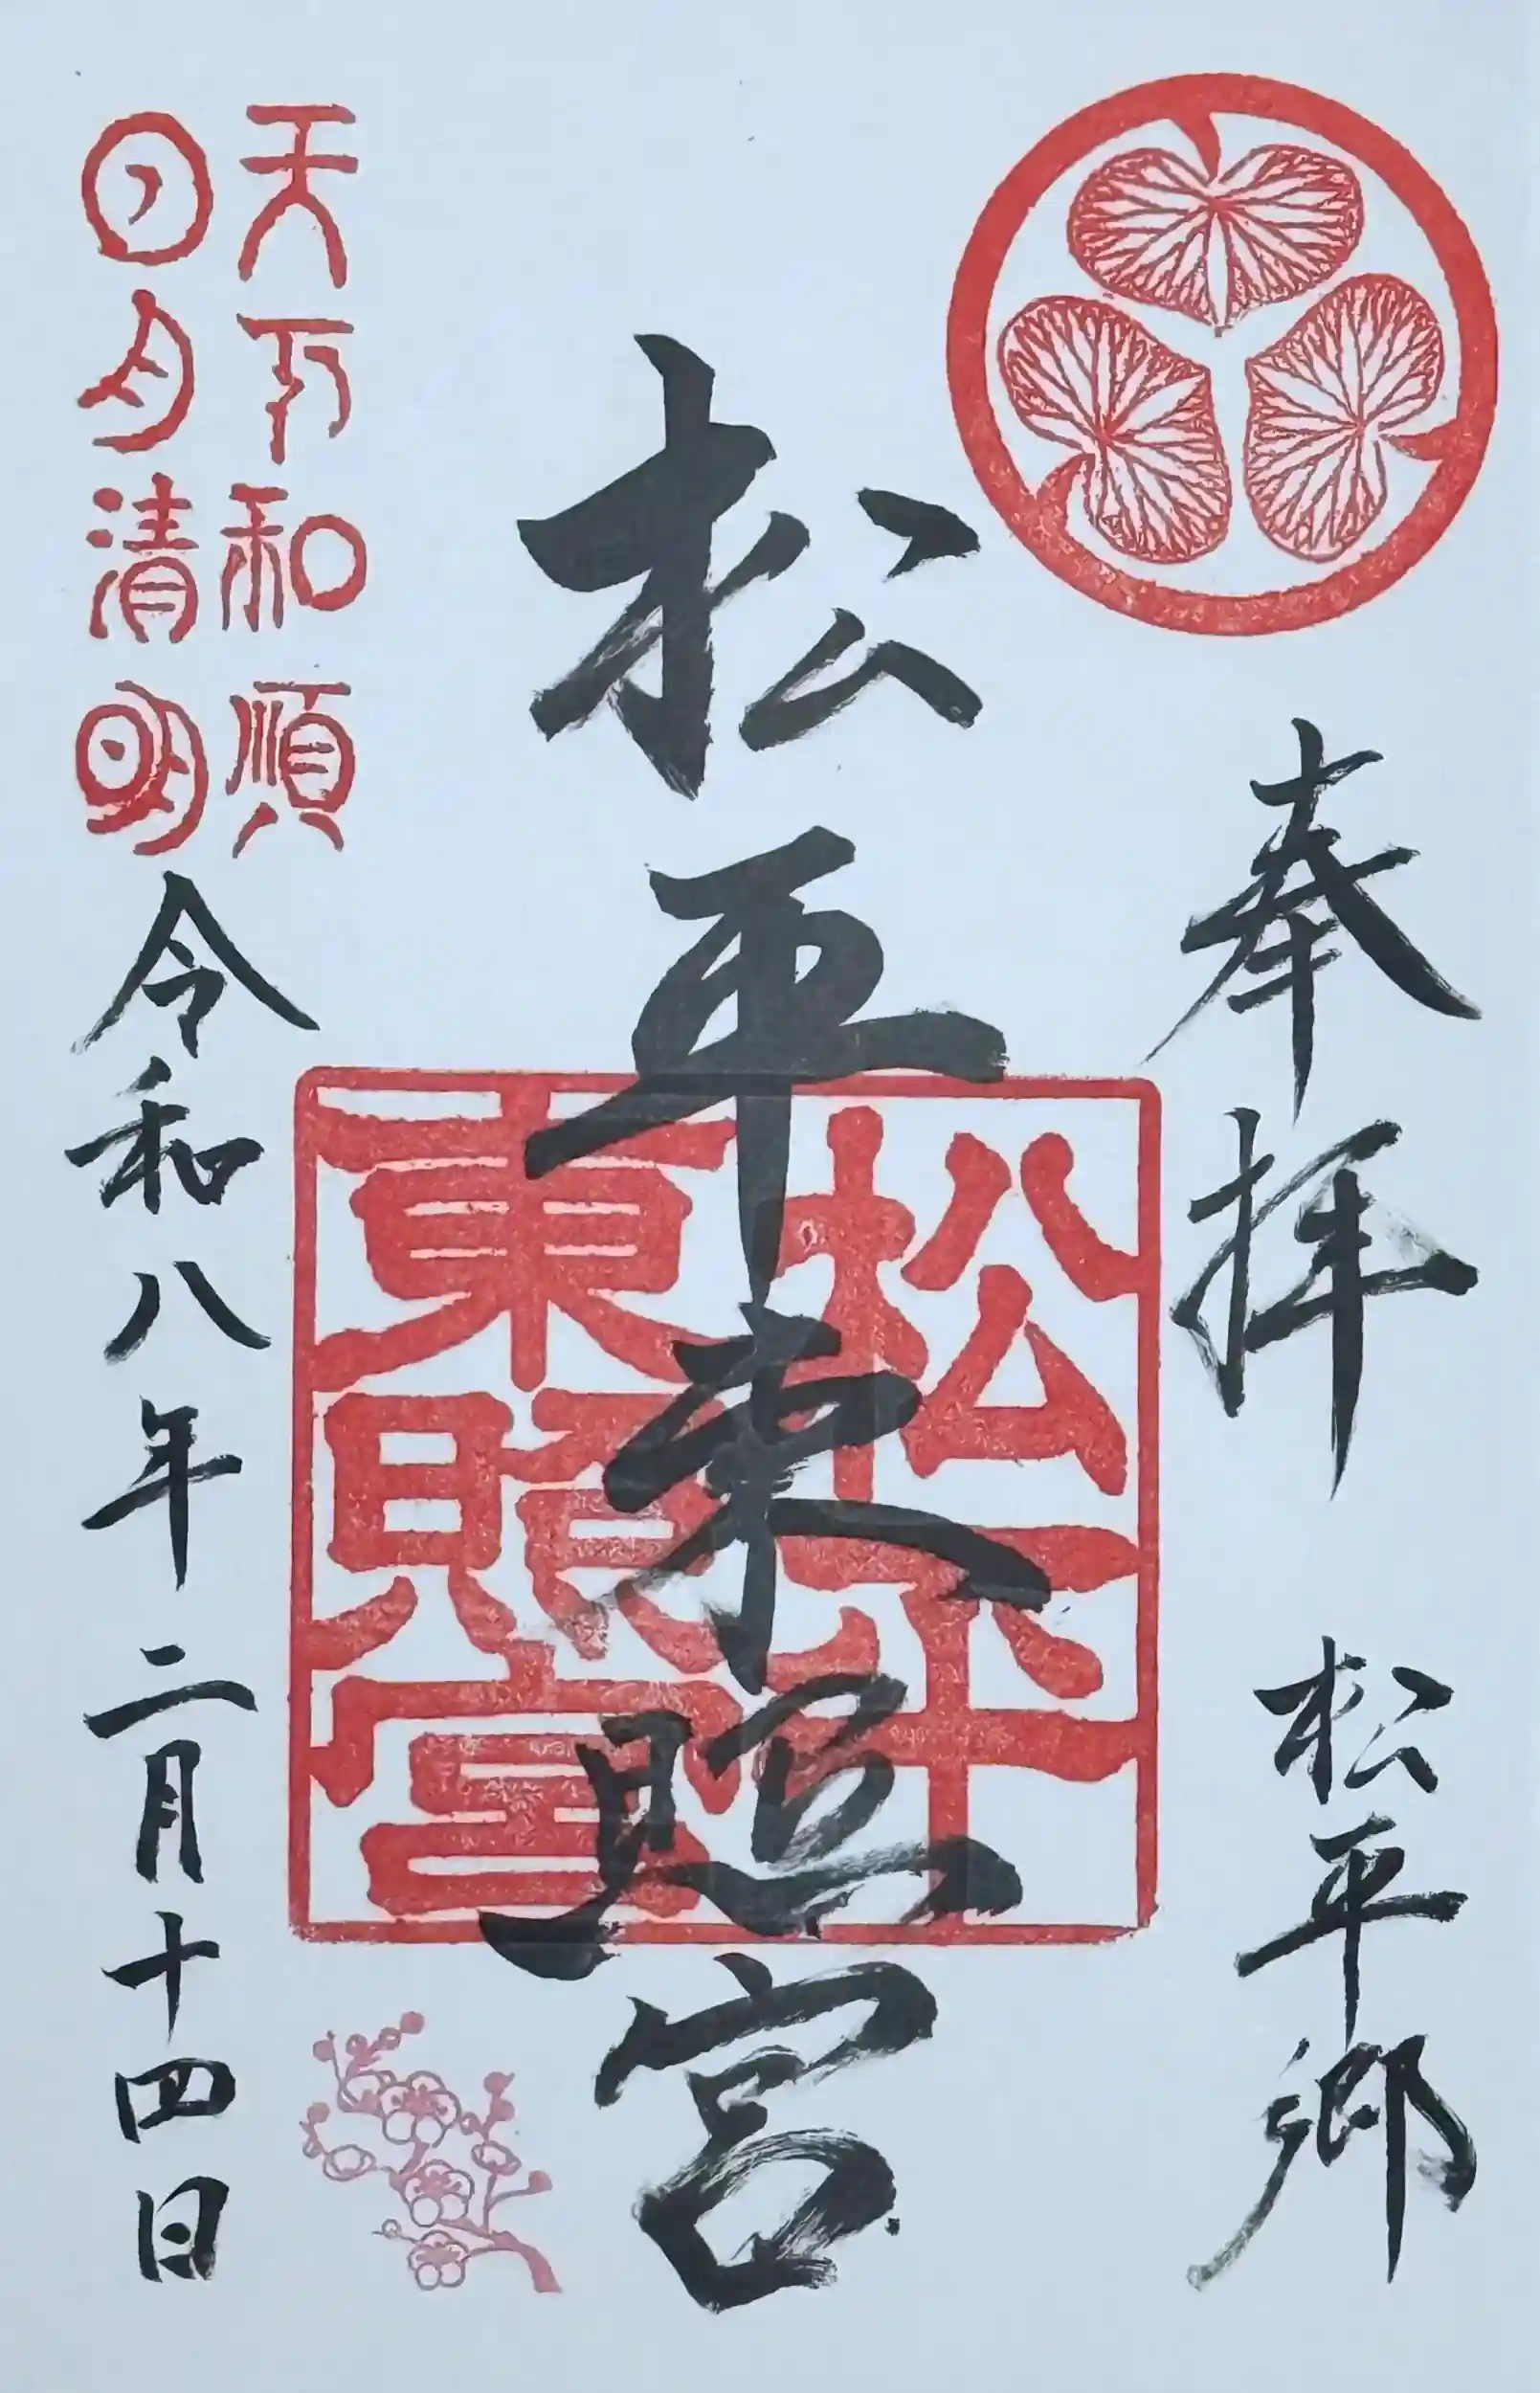 奉拝 松平郷
松平東照宮
松平
東照宮
天下和順
日月清明
令和八年二月十四日